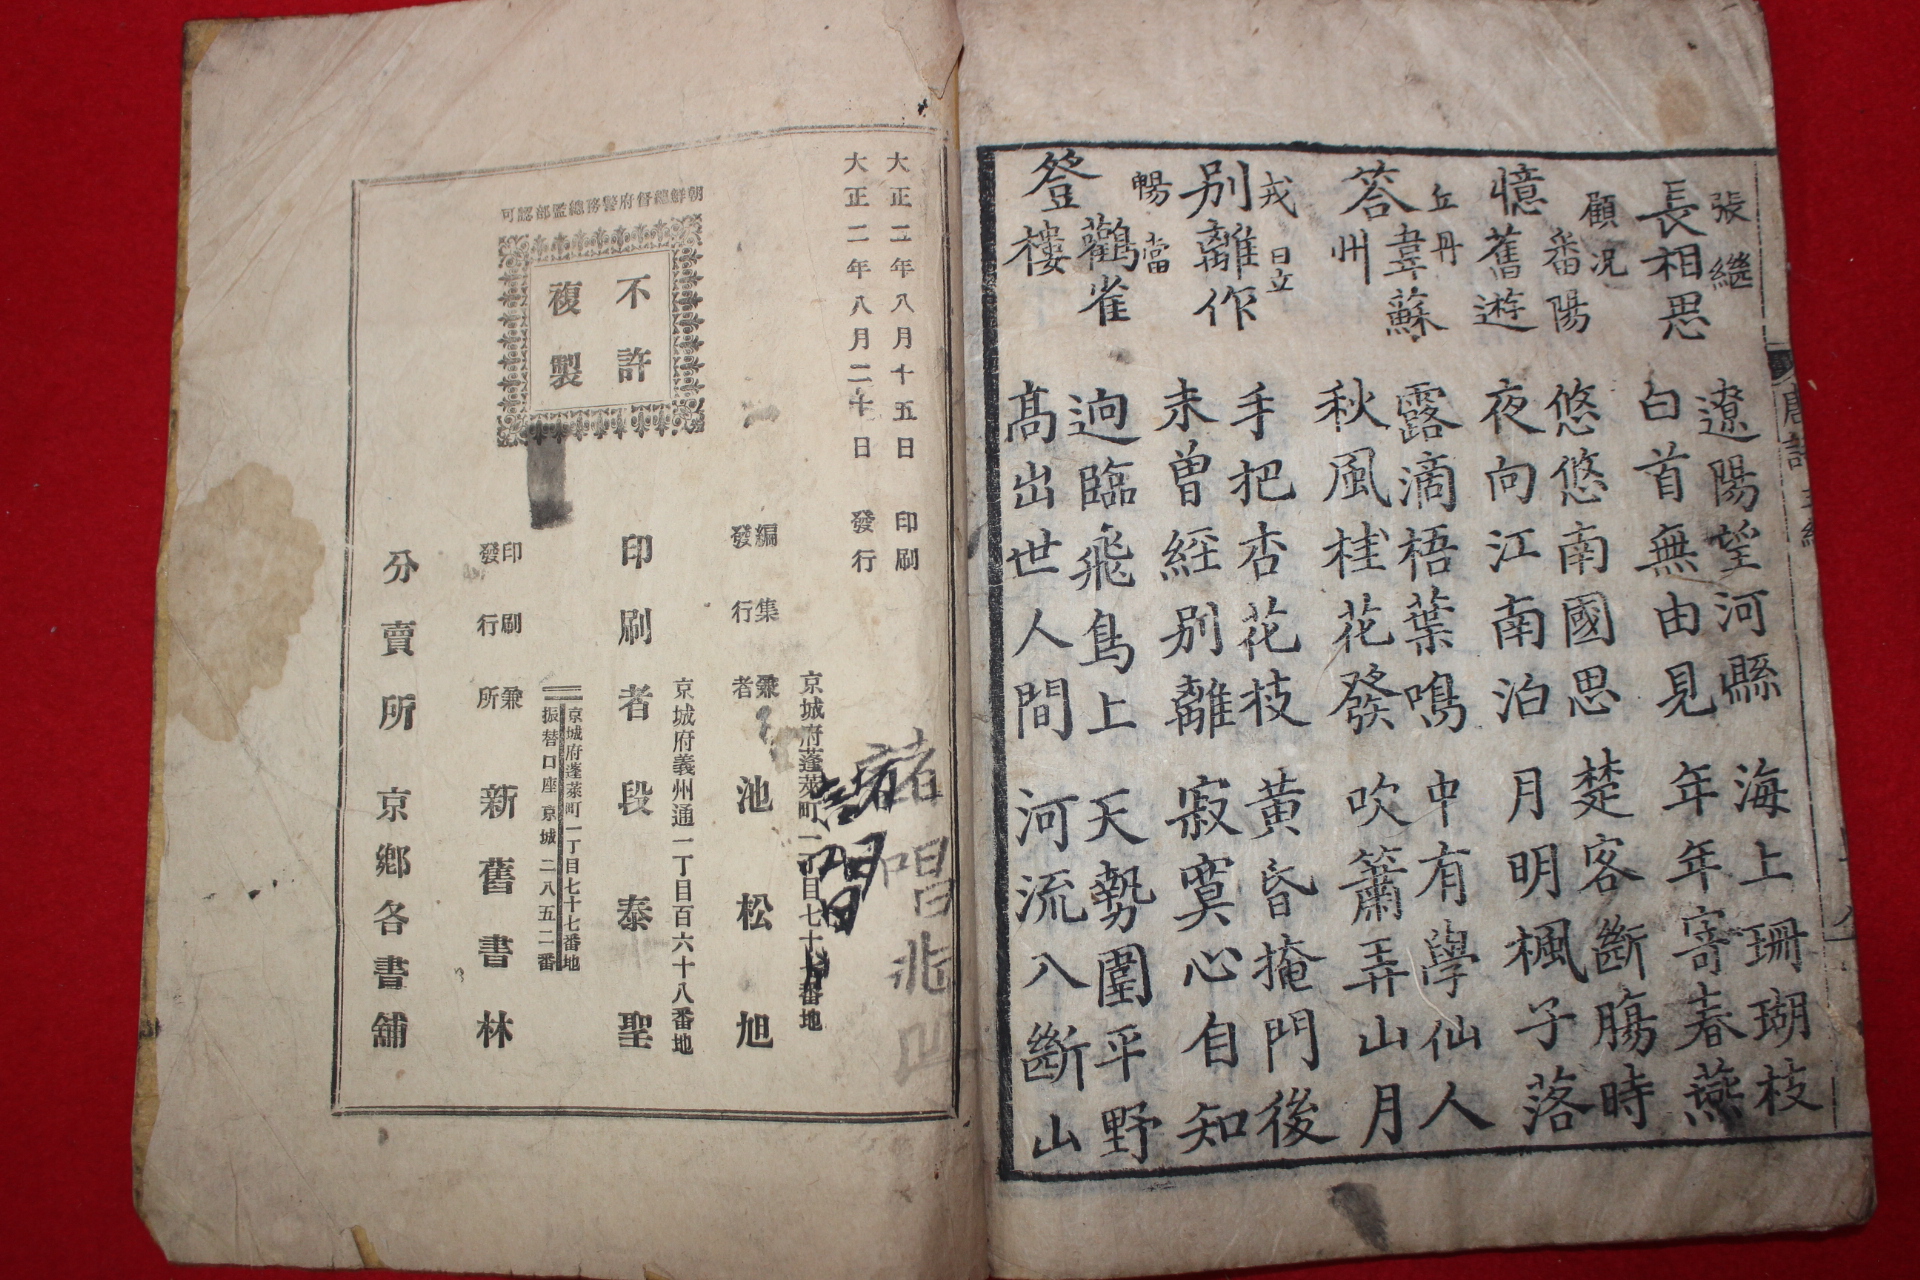 張繼
長相思
遼陽望河縣
白首無由見
海上珊瑚枝
年年寄春燕
顧況
憶舊遊
番陽
悠悠南國思
夜向江南泊
楚客斷膓時
月明楓子落
丘丹
答韋蘇
州
露滴梧葉鳴
秋風桂花發
中有學仙人
吹簫弄山月
戎昱
別離作
手把杏花枝
未曾經別離
黃昏掩門後
寂寞心自知
暢當
登鸛雀
樓
逈臨飛鳥上
高出世人間
天勢圍平野
河流入斷山
唐詩
大正二年八月十五日 印刷
大正二年八月二十日 發行
朝鮮總督府警務總監部認可
不許
複製
京城府蓬萊町一丁目七十七番地
編集兼
發行者
池松旭
京城府義州通一丁目百六十八番地
印刷者 段泰聖
京城府蓬萊町一丁目七十七番地
振替口座京城二八五二番
印刷兼
發行所
新舊書林
分賣所 京鄉各書舖